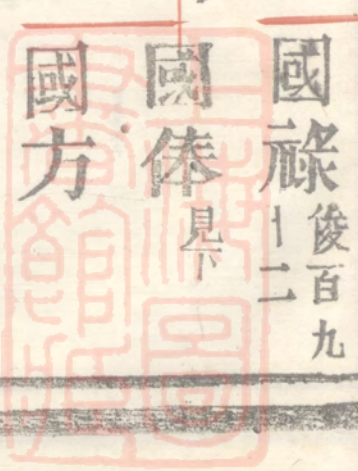 國祿俊百九十二
國俸見下
國方